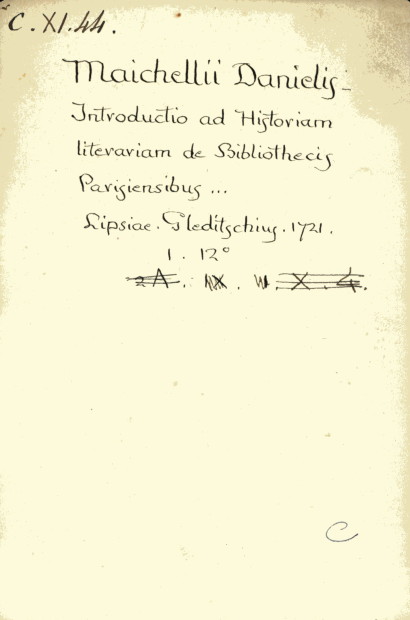 C.XI.44.
Maichellii Danielis-
Introductio ad Historiam
literariam de Bibliothecis
Parisiensibus ...
Lipsiae. Gleditschius. 1721.
1. 12°
2A. X. 4.
C